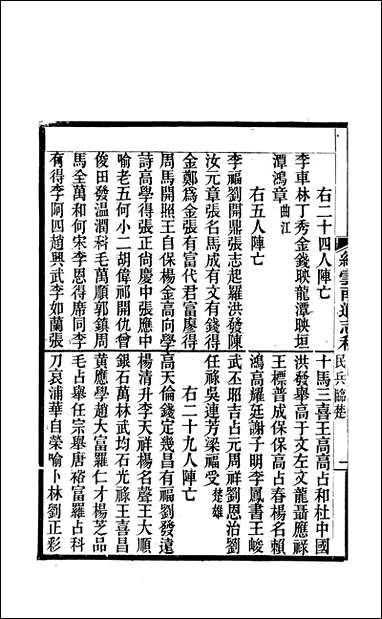 續雲南通志稿
民兵 臨楚
右二十四人陣亡
李車林丁秀金錢映龍潭映垣
潭鴻章曲江
右五人陣亡
李福劉開鼎張志起羅洪發陳
汝元章張名馬成有文有錢得
金鄭爲金張有富代君富廖得
周馬開照王自保楊金高向學
詩高學得張正尙慶中張應中
喻老五何小二胡偉祁開仇曾
俊田發温潤科毛萬順郭鎮周
馬全萬和何宋李恩得席同李
有得李阿四趙興武李如蘭張
十馬三喜王高高占和杜中國
洪發舉高于文左文龍聶應祿
王標普成保保高占春楊名賴
鴻高耀廷謝子明李鳳書王峻
武丕昭吉占元周祥劉恩治劉
任祿吳連芳梁福受楚雄
右二十九人陣亡
高天倫錢定幾昌有福劉發遠
楊清升李天祥楊名聲王大順
銀石萬林武均石光祿王喜昌
黃應學趙大富羅仁才楊芝品
毛占舉任宗舉唐裕富羅占科
刀哀浦華自榮喻卜林劉正彩